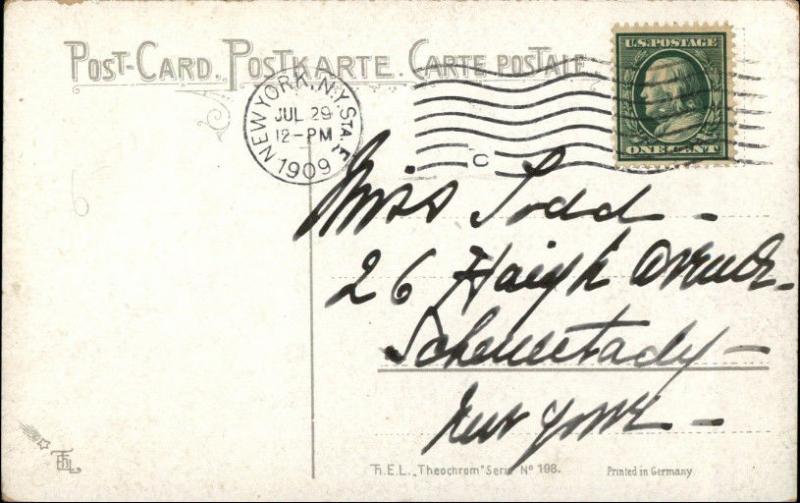 POST-CARD. POSTKARTE. CARTE POSTALE
U.S. POSTAGE
ONE CENT
NEW YORK, N.Y. STA. F
JUL 29
12-PM
1909
C
Miss Todd -
26 Haigh Avenue -
Schenectady -
New York -
Th.E.L. „Theochrom" Serie No 198.
Printed in Germany
ThEL